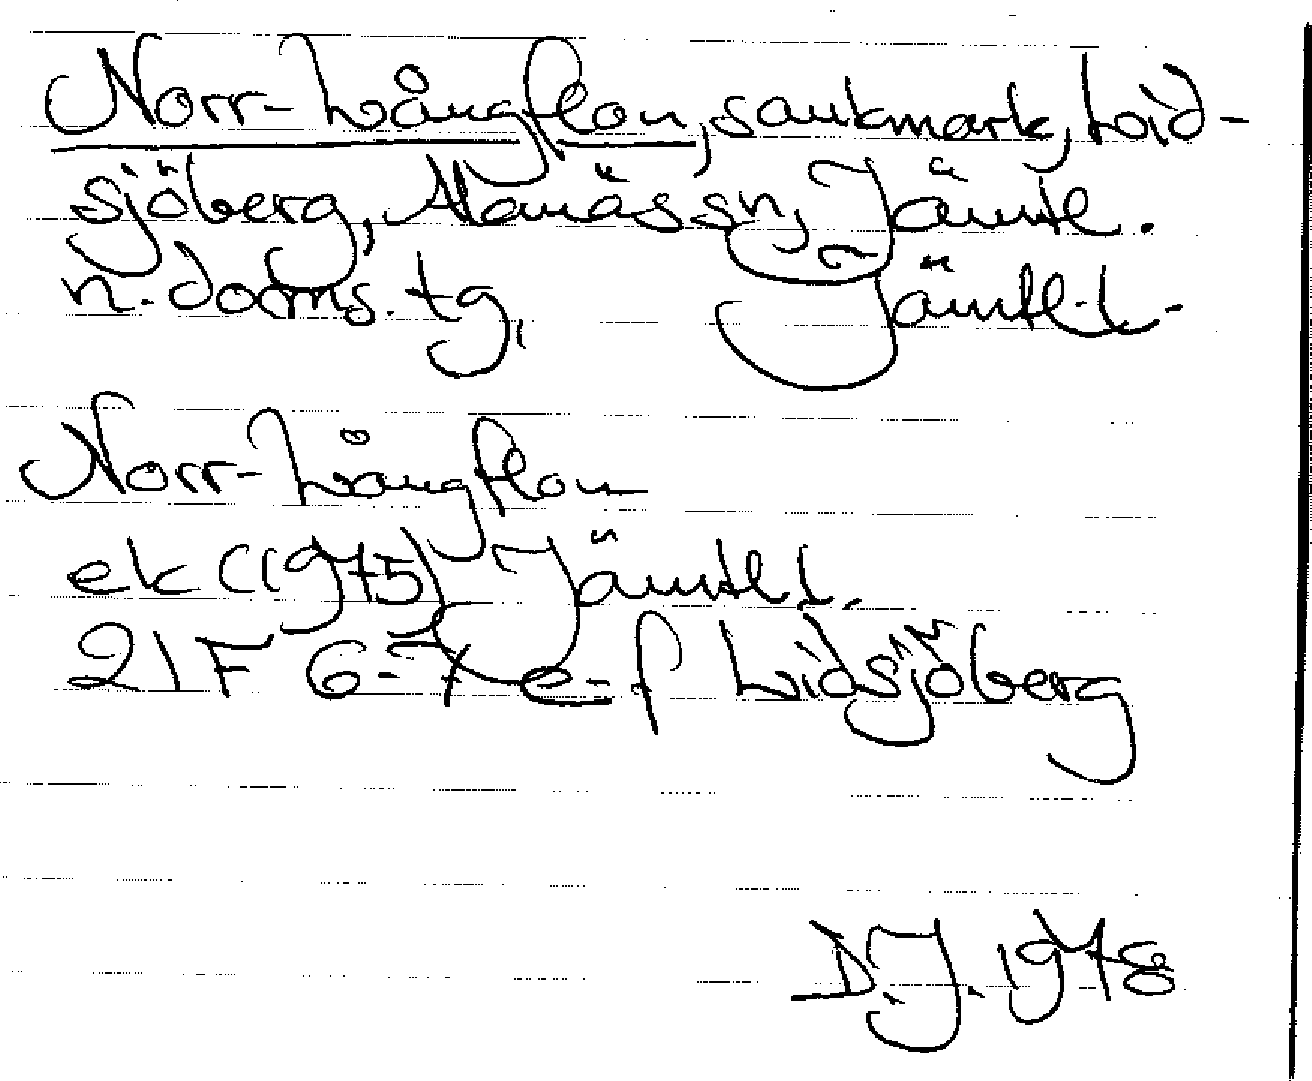 Norr-Långflon, sankmark, Lid-
sjöberg, Alanäs sn, Jämtl.
n. doms. tg, Jämtl. l.
Norr-Långflon
ek (1975) Jämtl l.
21F 6-7 e-f Lidsjöberg
D.J. 1978